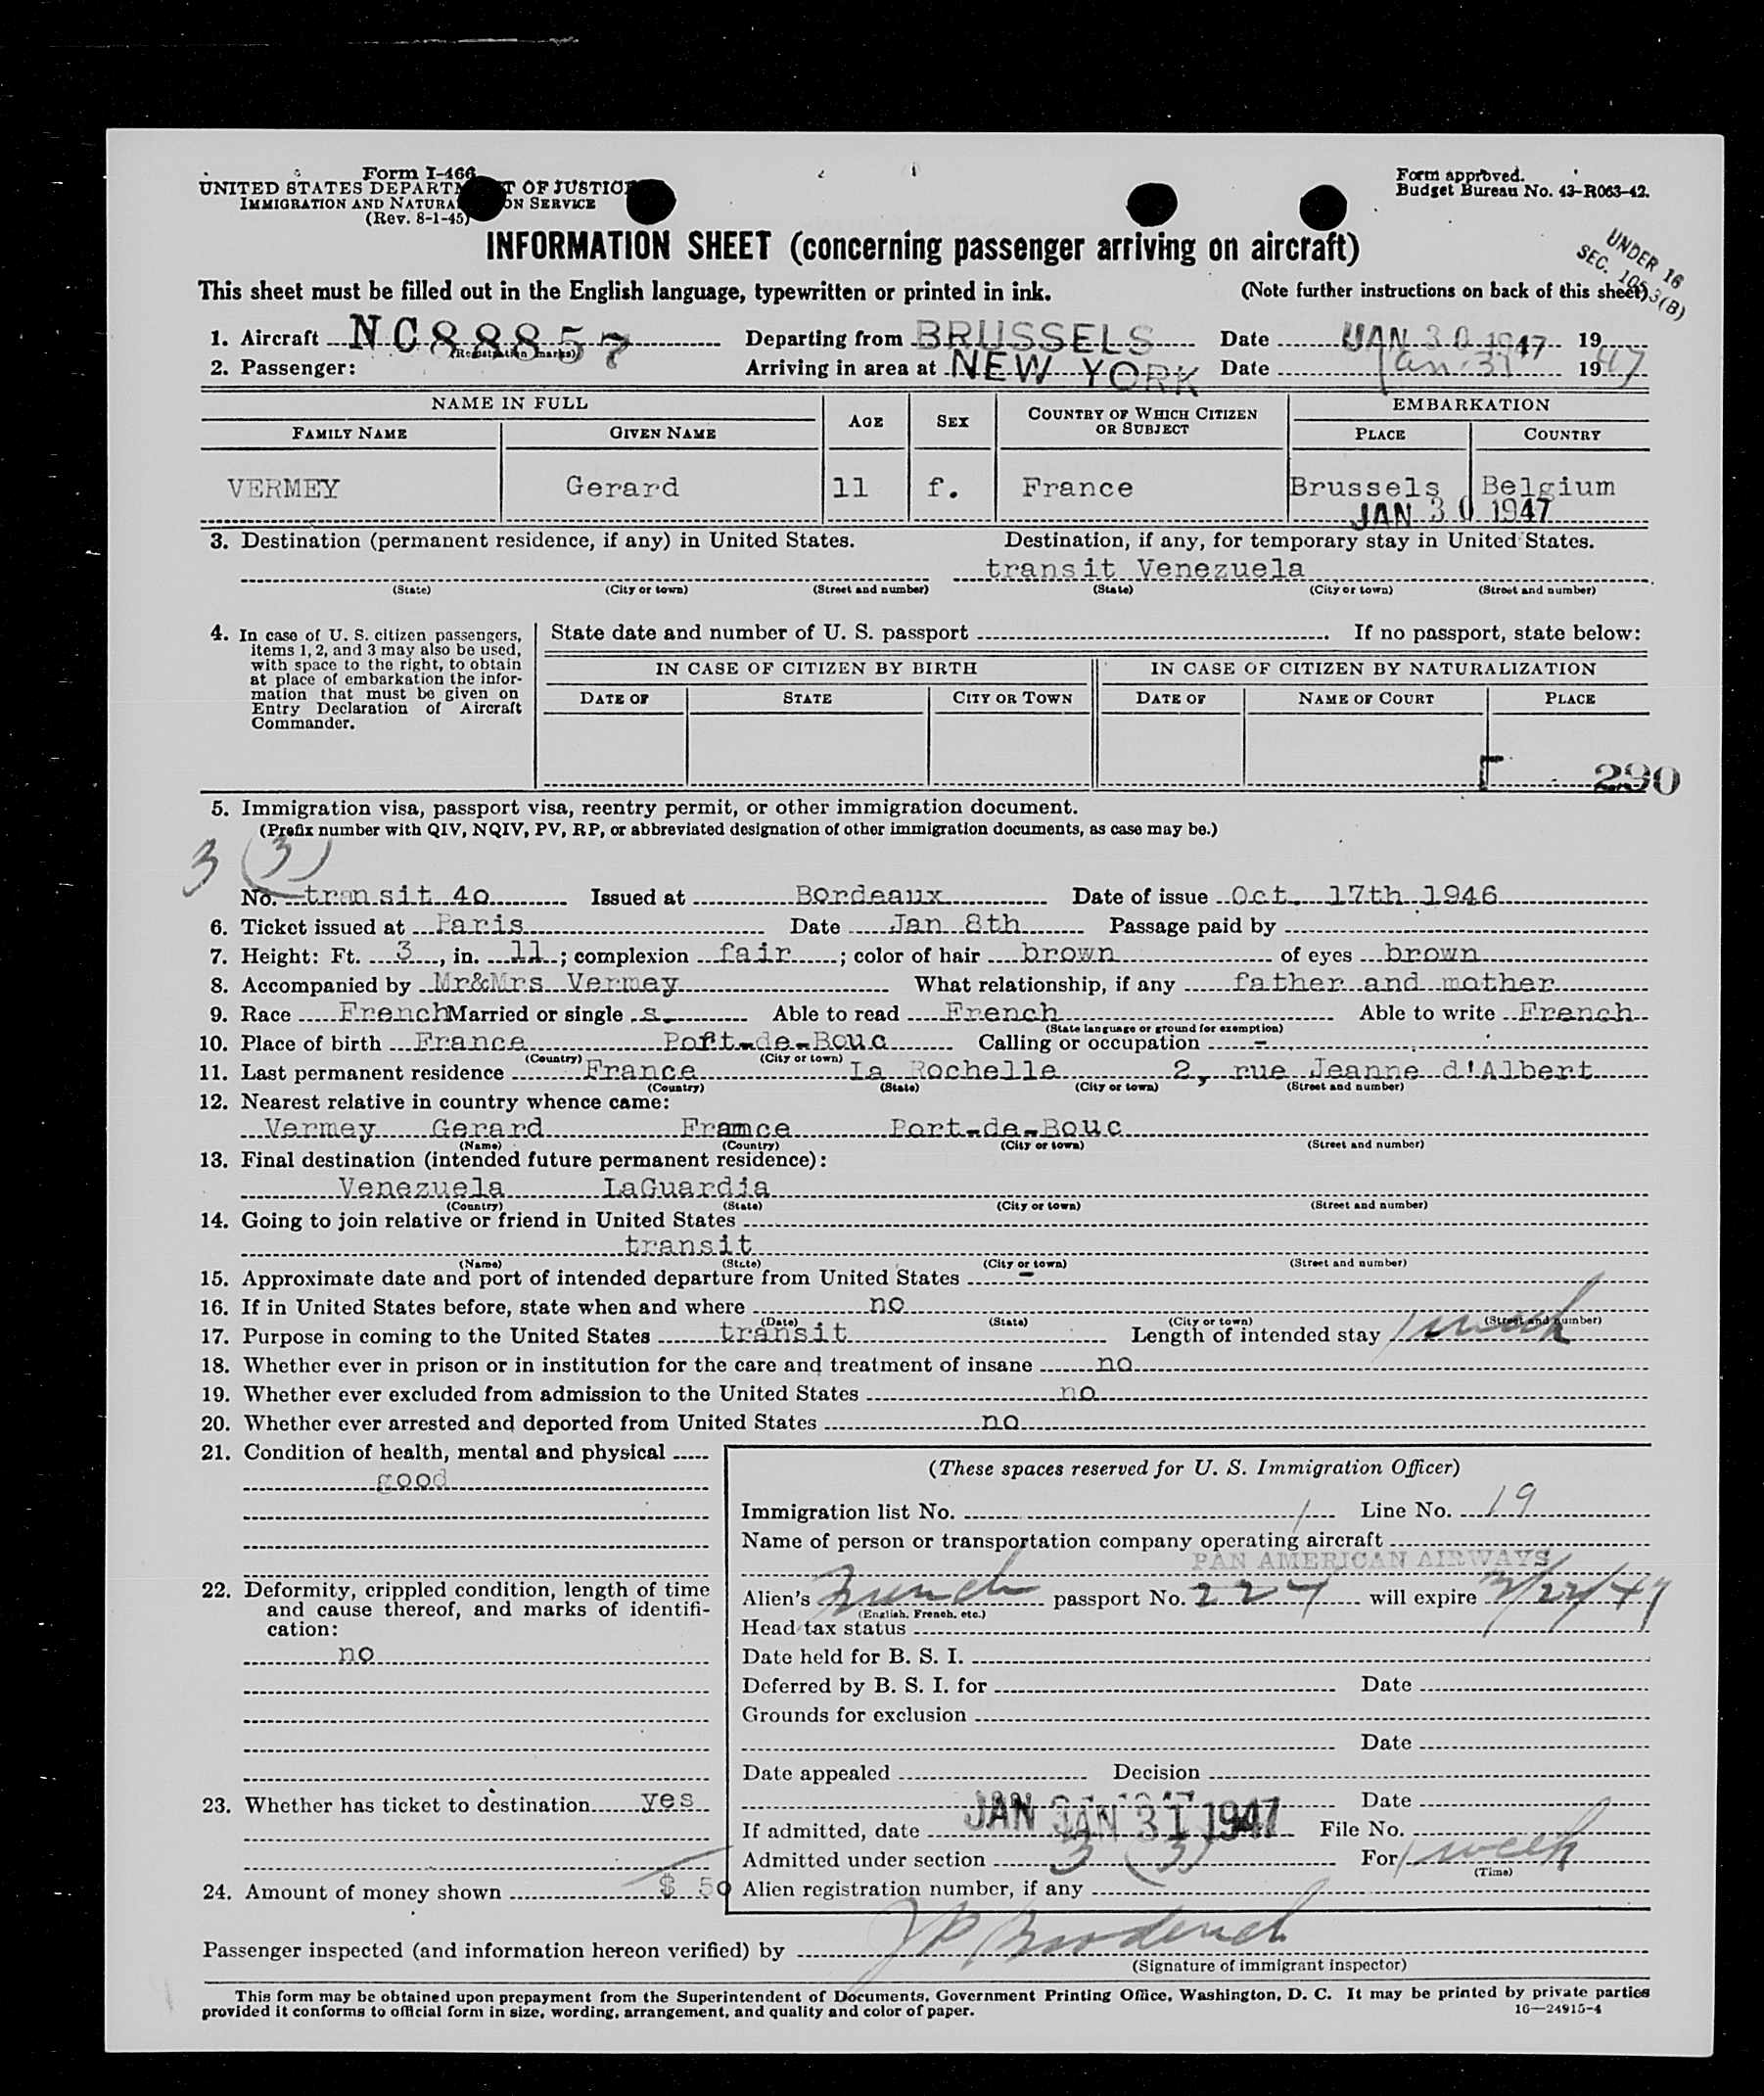 Form I-466
UNITED STATES DEPARTMENT OF JUSTICE
IMMIGRATION AND NATURALIZATION SERVICE
(Rev. 8-1-45)
Form approved.
Budget Bureau No. 43-R063-42.
INFORMATION SHEET (concerning passenger arriving on aircraft)
UNDER 16
SEC. 105.3(B)
This sheet must be filled out in the English language, typewritten or printed in ink. (Note further instructions on back of this sheet)
1. Aircraft NC88857 Departing from BRUSSELS Date JAN 30 1947 19
(Registration marks)
2. Passenger: Arriving in area at NEW YORK Date Jan. 31 1947
NAME IN FULL AGE SEX COUNTRY OF WHICH CITIZEN OR SUBJECT EMBARKATION
FAMILY NAME GIVEN NAME PLACE COUNTRY
VERMEY Gerard 11 f. France Brussels Belgium
JAN 30 1947
3. Destination (permanent residence, if any) in United States. Destination, if any, for temporary stay in United States.
transit Venezuela
(State) (City or town) (Street and number) (State) (City or town) (Street and number)
4. In case of U. S. citizen passengers, items 1, 2, and 3 may also be used, with space to the right, to obtain at place of embarkation the information that must be given on Entry Declaration of Aircraft Commander.
State date and number of U. S. passport . If no passport, state below:
IN CASE OF CITIZEN BY BIRTH IN CASE OF CITIZEN BY NATURALIZATION
DATE OF STATE CITY OR TOWN DATE OF NAME OF COURT PLACE
290
5. Immigration visa, passport visa, reentry permit, or other immigration document.
(Prefix number with QIV, NQIV, PV, RP, or abbreviated designation of other immigration documents, as case may be.)
3 (3)
No. transit 40 Issued at Bordeaux Date of issue Oct. 17th 1946
6. Ticket issued at Paris Date Jan 8th Passage paid by
7. Height: Ft. 3, in. 11; complexion fair; color of hair brown of eyes brown
8. Accompanied by Mr&Mrs Vermey What relationship, if any father and mother
9. Race French Married or single s. Able to read French Able to write French
(State language or ground for exemption)
10. Place of birth France Port-de-Bouc Calling or occupation -
(Country) (City or town)
11. Last permanent residence France La Rochelle 2, rue Jeanne d'Albert
(Country) (State) (City or town) (Street and number)
12. Nearest relative in country whence came:
Vermey Gerard Framce Port-de-Bouc
(Name) (Country) (City or town) (Street and number)
13. Final destination (intended future permanent residence):
Venezuela LaGuardia
(Country) (State) (City or town) (Street and number)
14. Going to join relative or friend in United States
transit
(Name) (State) (City or town) (Street and number)
15. Approximate date and port of intended departure from United States -
16. If in United States before, state when and where no
(Date) (State) (City or town) (Street and number)
17. Purpose in coming to the United States transit Length of intended stay 1 week
18. Whether ever in prison or in institution for the care and treatment of insane no
19. Whether ever excluded from admission to the United States no
20. Whether ever arrested and deported from United States no
21. Condition of health, mental and physical
good
22. Deformity, crippled condition, length of time and cause thereof, and marks of identification:
no
23. Whether has ticket to destination yes
24. Amount of money shown $ 50
(These spaces reserved for U. S. Immigration Officer)
Immigration list No. 1 Line No. 19
Name of person or transportation company operating aircraft
PAN AMERICAN AIRWAYS
Alien's French passport No. 227 will expire
(English, French, etc.)
Head tax status
Date held for B. S. I.
Deferred by B. S. I. for Date
Grounds for exclusion
Date
Date appealed Decision
Date
If admitted, date JAN 31 1947 File No.
Admitted under section 3 (3) For 1 week
(Time)
Alien registration number, if any
Passenger inspected (and information hereon verified) by
(Signature of immigrant inspector)
This form may be obtained upon prepayment from the Superintendent of Documents, Government Printing Office, Washington, D. C. It may be printed by private parties
provided it conforms to official form in size, wording, arrangement, and quality and color of paper. 16—24915-4